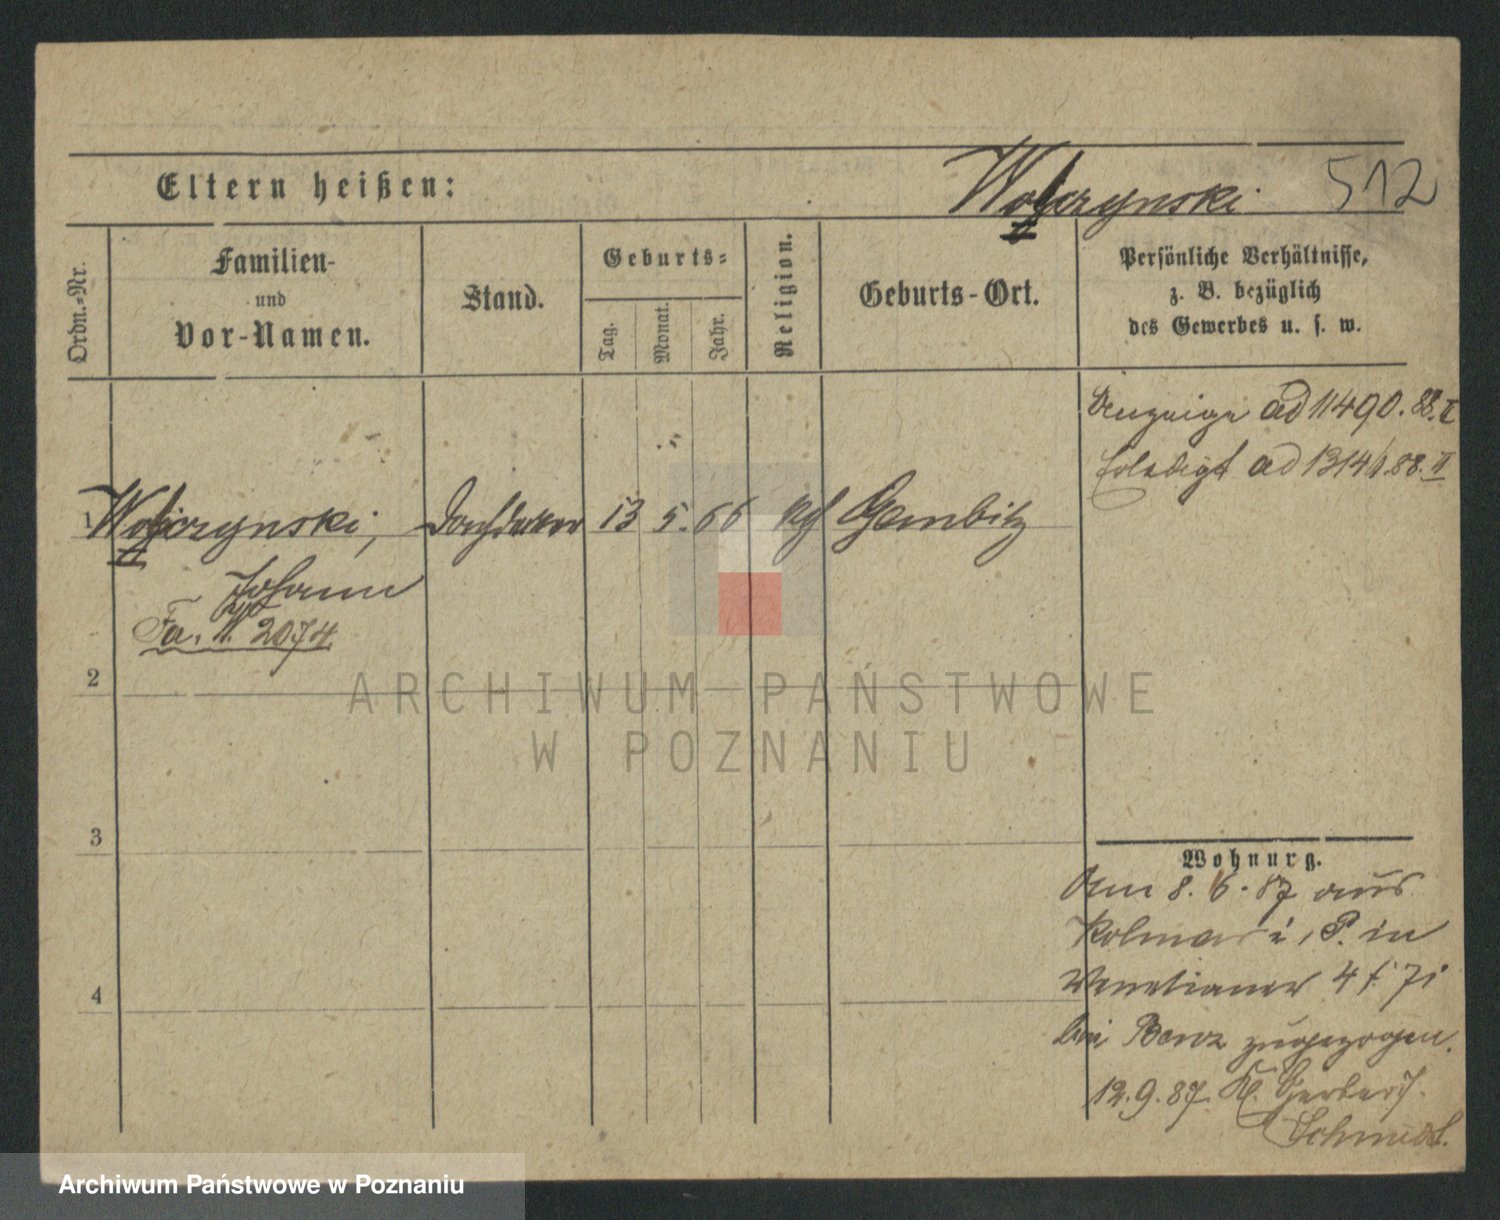 Eltern heißen:
Wolczynski 512
Ordn.-Nr.
Familien-
und
Vor-Namen.
Stand.
Geburts-
Tag.
Monat.
Jahr.
Religion.
Geburts-Ort.
Persönliche Verhältnisse,
z. B. bezüglich
des Gewerbes u. s. w.
Anzeige ad 11490. 88. II
Erledigt ad 1314/1.88. II
1 Wolczynski, Dachdecker 13 5. 66 kth Gembitz
Johann
Fa. W. 2074
2
3
4
Wohnung.
Am 8. 6. 87 aus
Kolmar i. P. in
Venetianer 4 f. 7i
bei Benz zugezogen.
12.9.87. Kl. Gerberst.
Schmidt.
ARCHIWUM PAŃSTWOWE
W POZNANIU
Archiwum Państwowe w Poznaniu